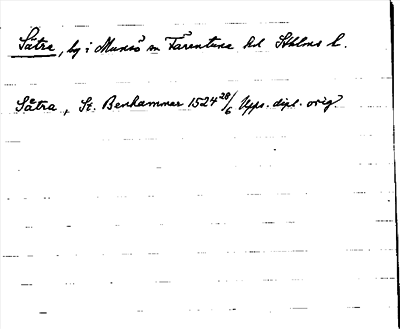 Sätra, by i Munsö sn Färentuna hd Sthlms l.
Sätra, St. Benhammar 1524 28/6 Upps. dipl. orig.